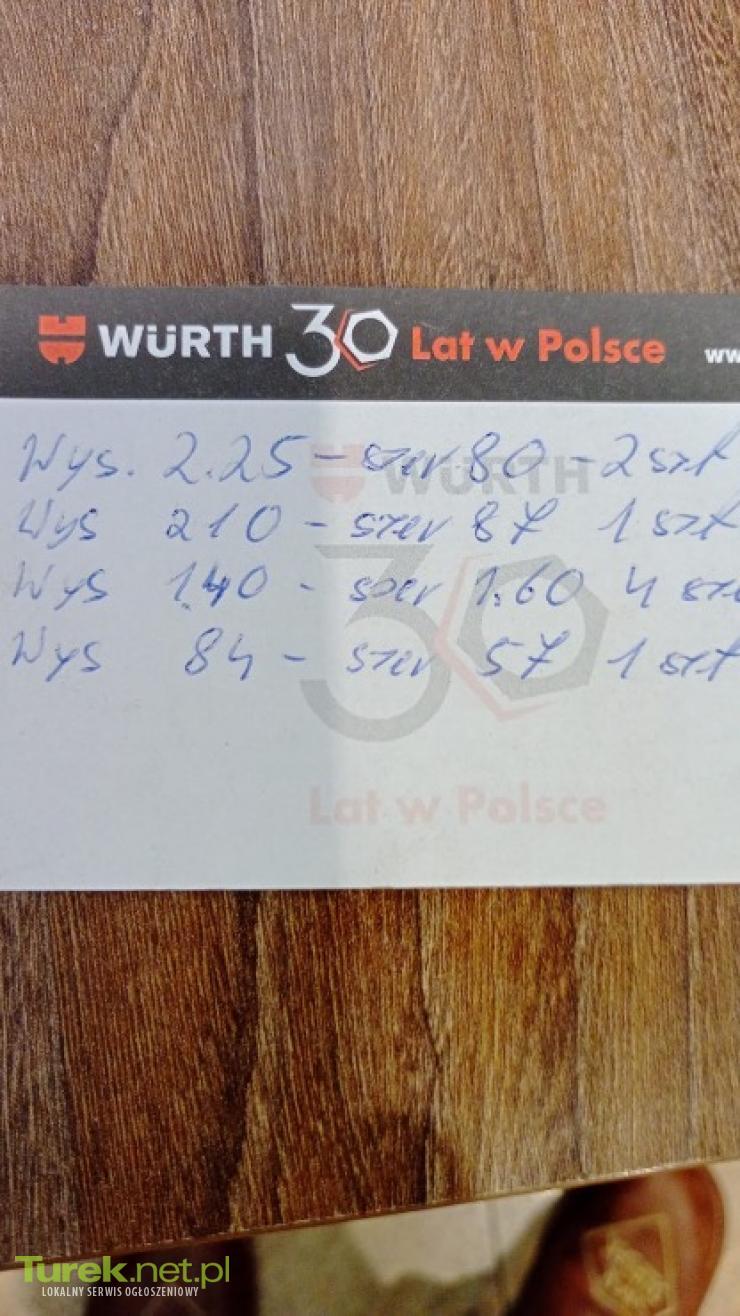 WÜRTH 30 Lat w Polsce ww
Wys. 2.25 - szer 80 - 2 szt
Wys 210 - szer 87 1 szt
Wys 1.40 - szer 1.60 4 sz
Wys 84 - szer 57 1 szt
WÜRTH
30
Lat w Polsce
Turek.net.pl
LOKALNY SERWIS OGŁOSZENIOWY